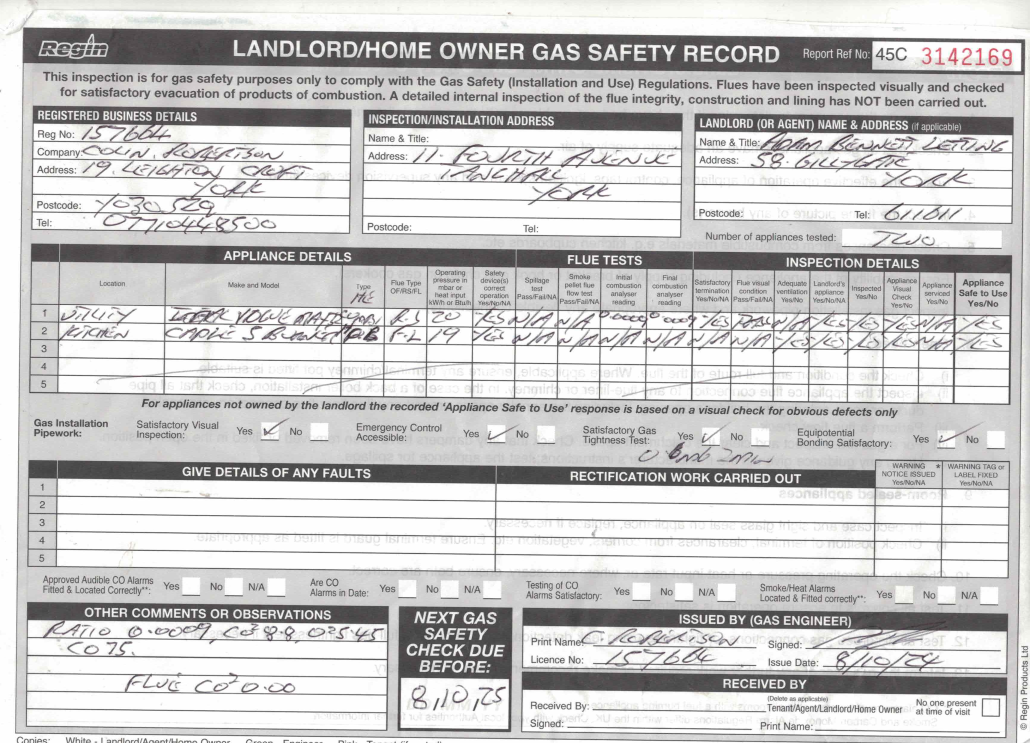 Regin
LANDLORD/HOME OWNER GAS SAFETY RECORD
Report Ref No: 45C 3142169
This inspection is for gas safety purposes only to comply with the Gas Safety (Installation and Use) Regulations. Flues have been inspected visually and checked
for satisfactory evacuation of products of combustion. A detailed internal inspection of the flue integrity, construction and lining has NOT been carried out.
REGISTERED BUSINESS DETAILS
Reg No: 157664
Company: COLIN. ROBERTSON
Address: 19. LEIGHTON CROFT
YORK
Postcode: YO30 5Z9
Tel: 07710448500
INSPECTION/INSTALLATION ADDRESS
Name & Title:
Address: 11. FOURTH AVENUE
YORK
Postcode: Tel:
LANDLORD (OR AGENT) NAME & ADDRESS (if applicable)
Name & Title: ADAM BENNETT LETTING
Address: 58. GILLYGATE
YORK
Postcode: Tel: 611611
Number of appliances tested: TWO
APPLIANCE DETAILS FLUE TESTS INSPECTION DETAILS
Location Make and Model Type Flue Type OF/RS/FL Operating pressure in mbar or heat input kW/h or Btu/h Safety device(s) correct operation Yes/No/NA Spillage test Pass/Fail/NA Smoke pellet flue flow test Pass/Fail/NA Initial combustion analyser reading Final combustion analyser reading Satisfactory termination Yes/No/NA Flue visual condition Pass/Fail/NA Adequate ventilation Yes/No Landlord's appliance Yes/No/NA Inspected Yes/No Appliance Visual Check Yes/No Appliance serviced Yes/No Appliance Safe to Use Yes/No
1 UTILITY R.S 20 YES N/A N/A 0.0009 0.0009 YES PASS N/A YES YES YES N/A YES
2 KITCHEN F-L 19 YES N/A N/A N/A N/A N/A N/A N/A YES YES YES N/A YES
3
4
5
For appliances not owned by the landlord the recorded 'Appliance Safe to Use' response is based on a visual check for obvious defects only
Gas Installation Pipework: Satisfactory Visual Inspection: Yes ✓ No Emergency Control Accessible: Yes ✓ No Satisfactory Gas Tightness Test: Yes ✓ No Equipotential Bonding Satisfactory: Yes ✓ No
GIVE DETAILS OF ANY FAULTS RECTIFICATION WORK CARRIED OUT WARNING NOTICE ISSUED * Yes/No/NA WARNING TAG or LABEL FIXED Yes/No/NA
1
2
3
4
5
Approved Audible CO Alarms Fitted & Located Correctly**: Yes No N/A Are CO Alarms in Date: Yes No N/A Testing of CO Alarms Satisfactory: Yes No N/A Smoke/Heat Alarms Located & Fitted correctly**: Yes No N/A
OTHER COMMENTS OR OBSERVATIONS
RATIO 0.0009, CO2 8.8, O2 5.45
CO 75.
FLUE CO2 0.00
NEXT GAS
SAFETY
CHECK DUE
BEFORE:
8,10,25
ISSUED BY (GAS ENGINEER)
Print Name: C. ROBERTSON Signed:
Licence No: 157664 Issue Date: 8/10/24
RECEIVED BY
(Delete as applicable)
Received By: Tenant/Agent/Landlord/Home Owner No one present at time of visit
Signed: Print Name:
© Regin Products Ltd